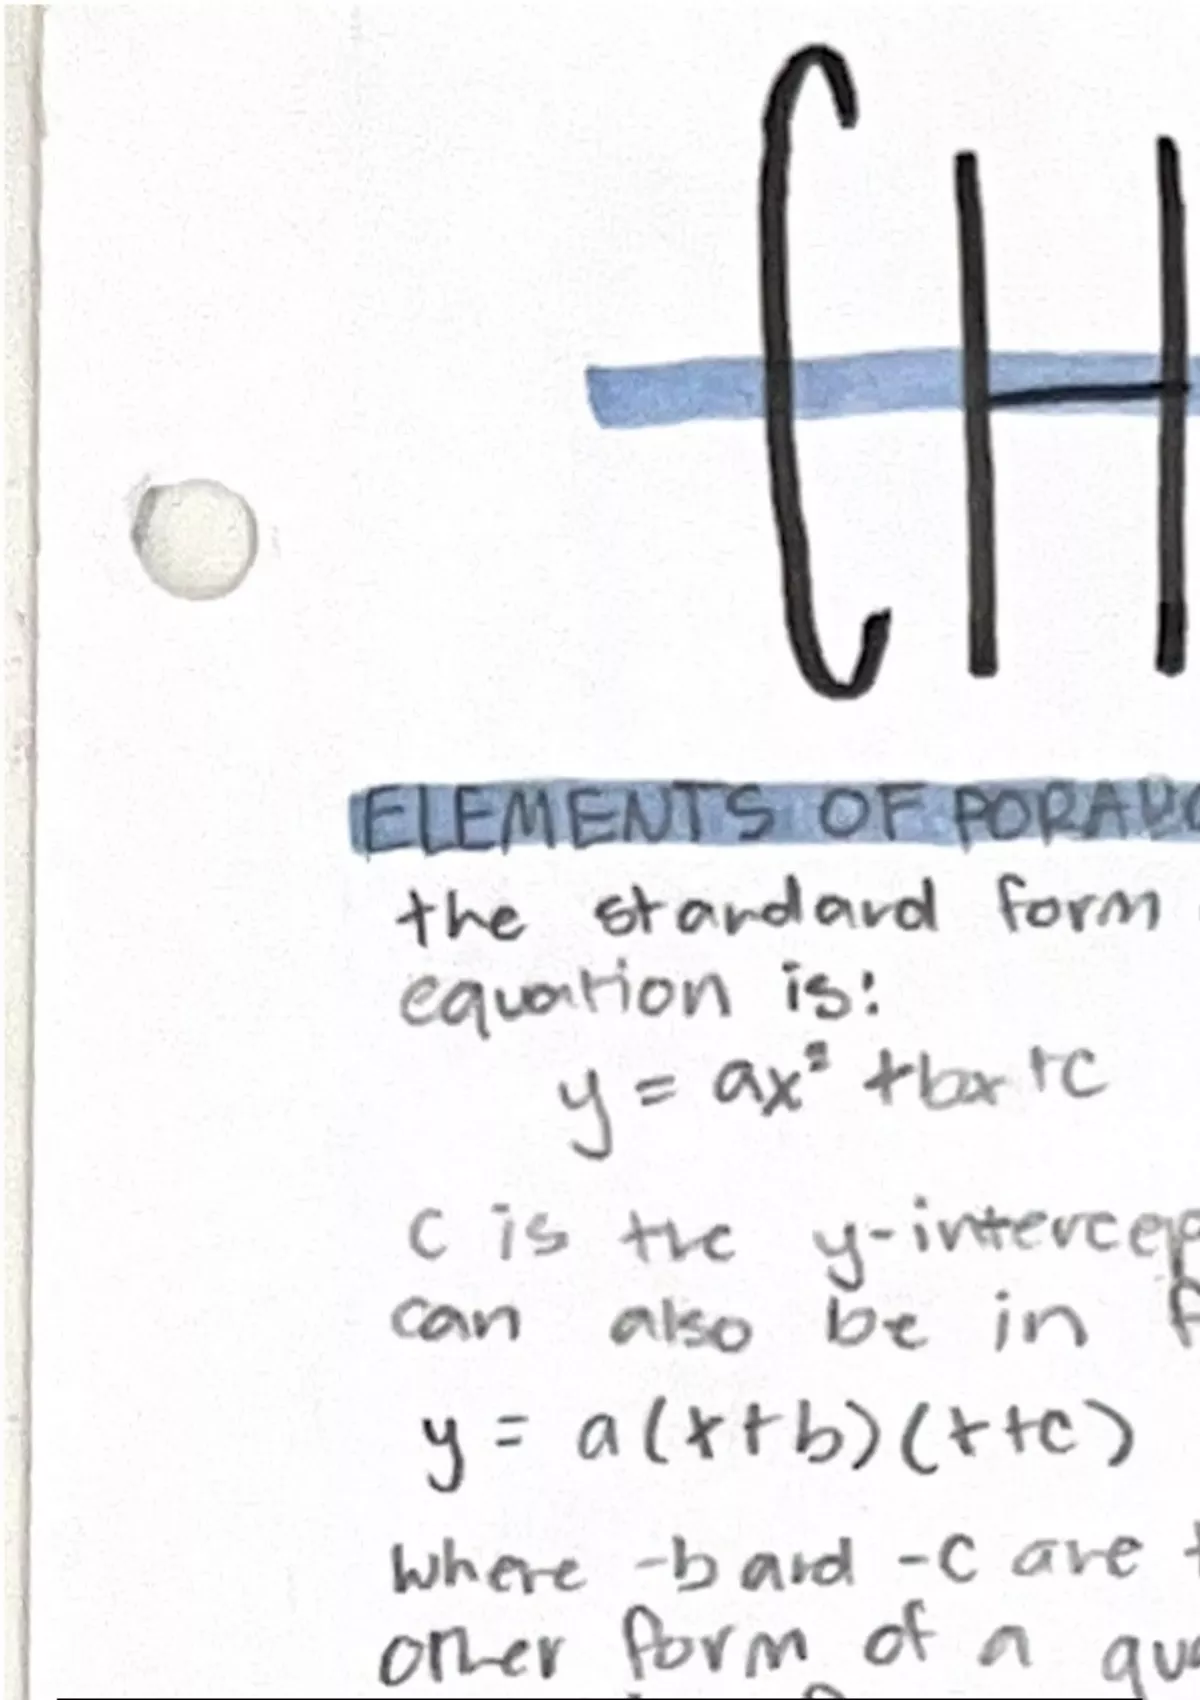 CH
ELEMENTS OF PORABO
the standard form
equation is:
y = ax² + bx + c
c is the y-intercep
can also be in f
y = a(x+b)(x+c)
where -b and -c are t
other form of a qua